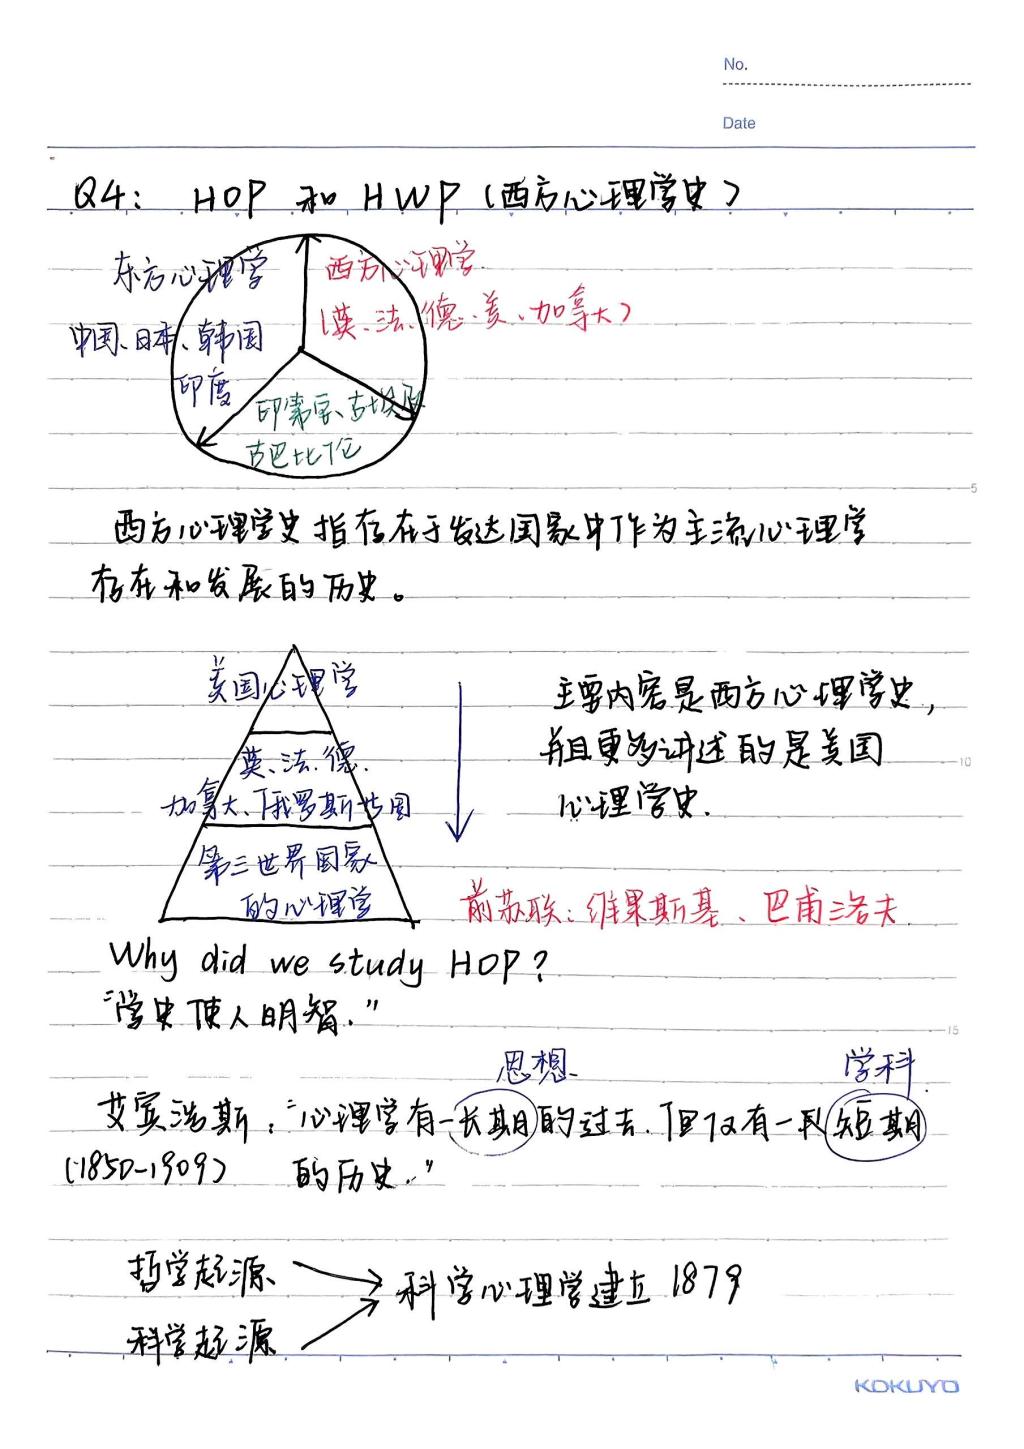 No.
Date
Q4: HOP 和 HWP (西方心理学史)
东方心理学
中国、日本、韩国
印度
西方心理学
(英、法、德、美、加拿大)
古埃及
古巴比伦
5
西方心理学史指存在于发达国家中作为主流心理学
存在和发展的历史。
美国心理学
英、法、德、
加拿大、俄罗斯
第三世界国家
的心理学
主要内容是西方心理学史,
并且更多讲述的是美国
心理学史.
10
前苏联: 维果斯基、巴甫洛夫.
Why did we study HOP?
"学史使人明智."
15
思想
学科
艾宾浩斯: "心理学有一长期的过去, 但仅有一段短期
(1850-1909) 的历史."
哲学起源
科学起源
科学心理学建立 1879
KOKUYO